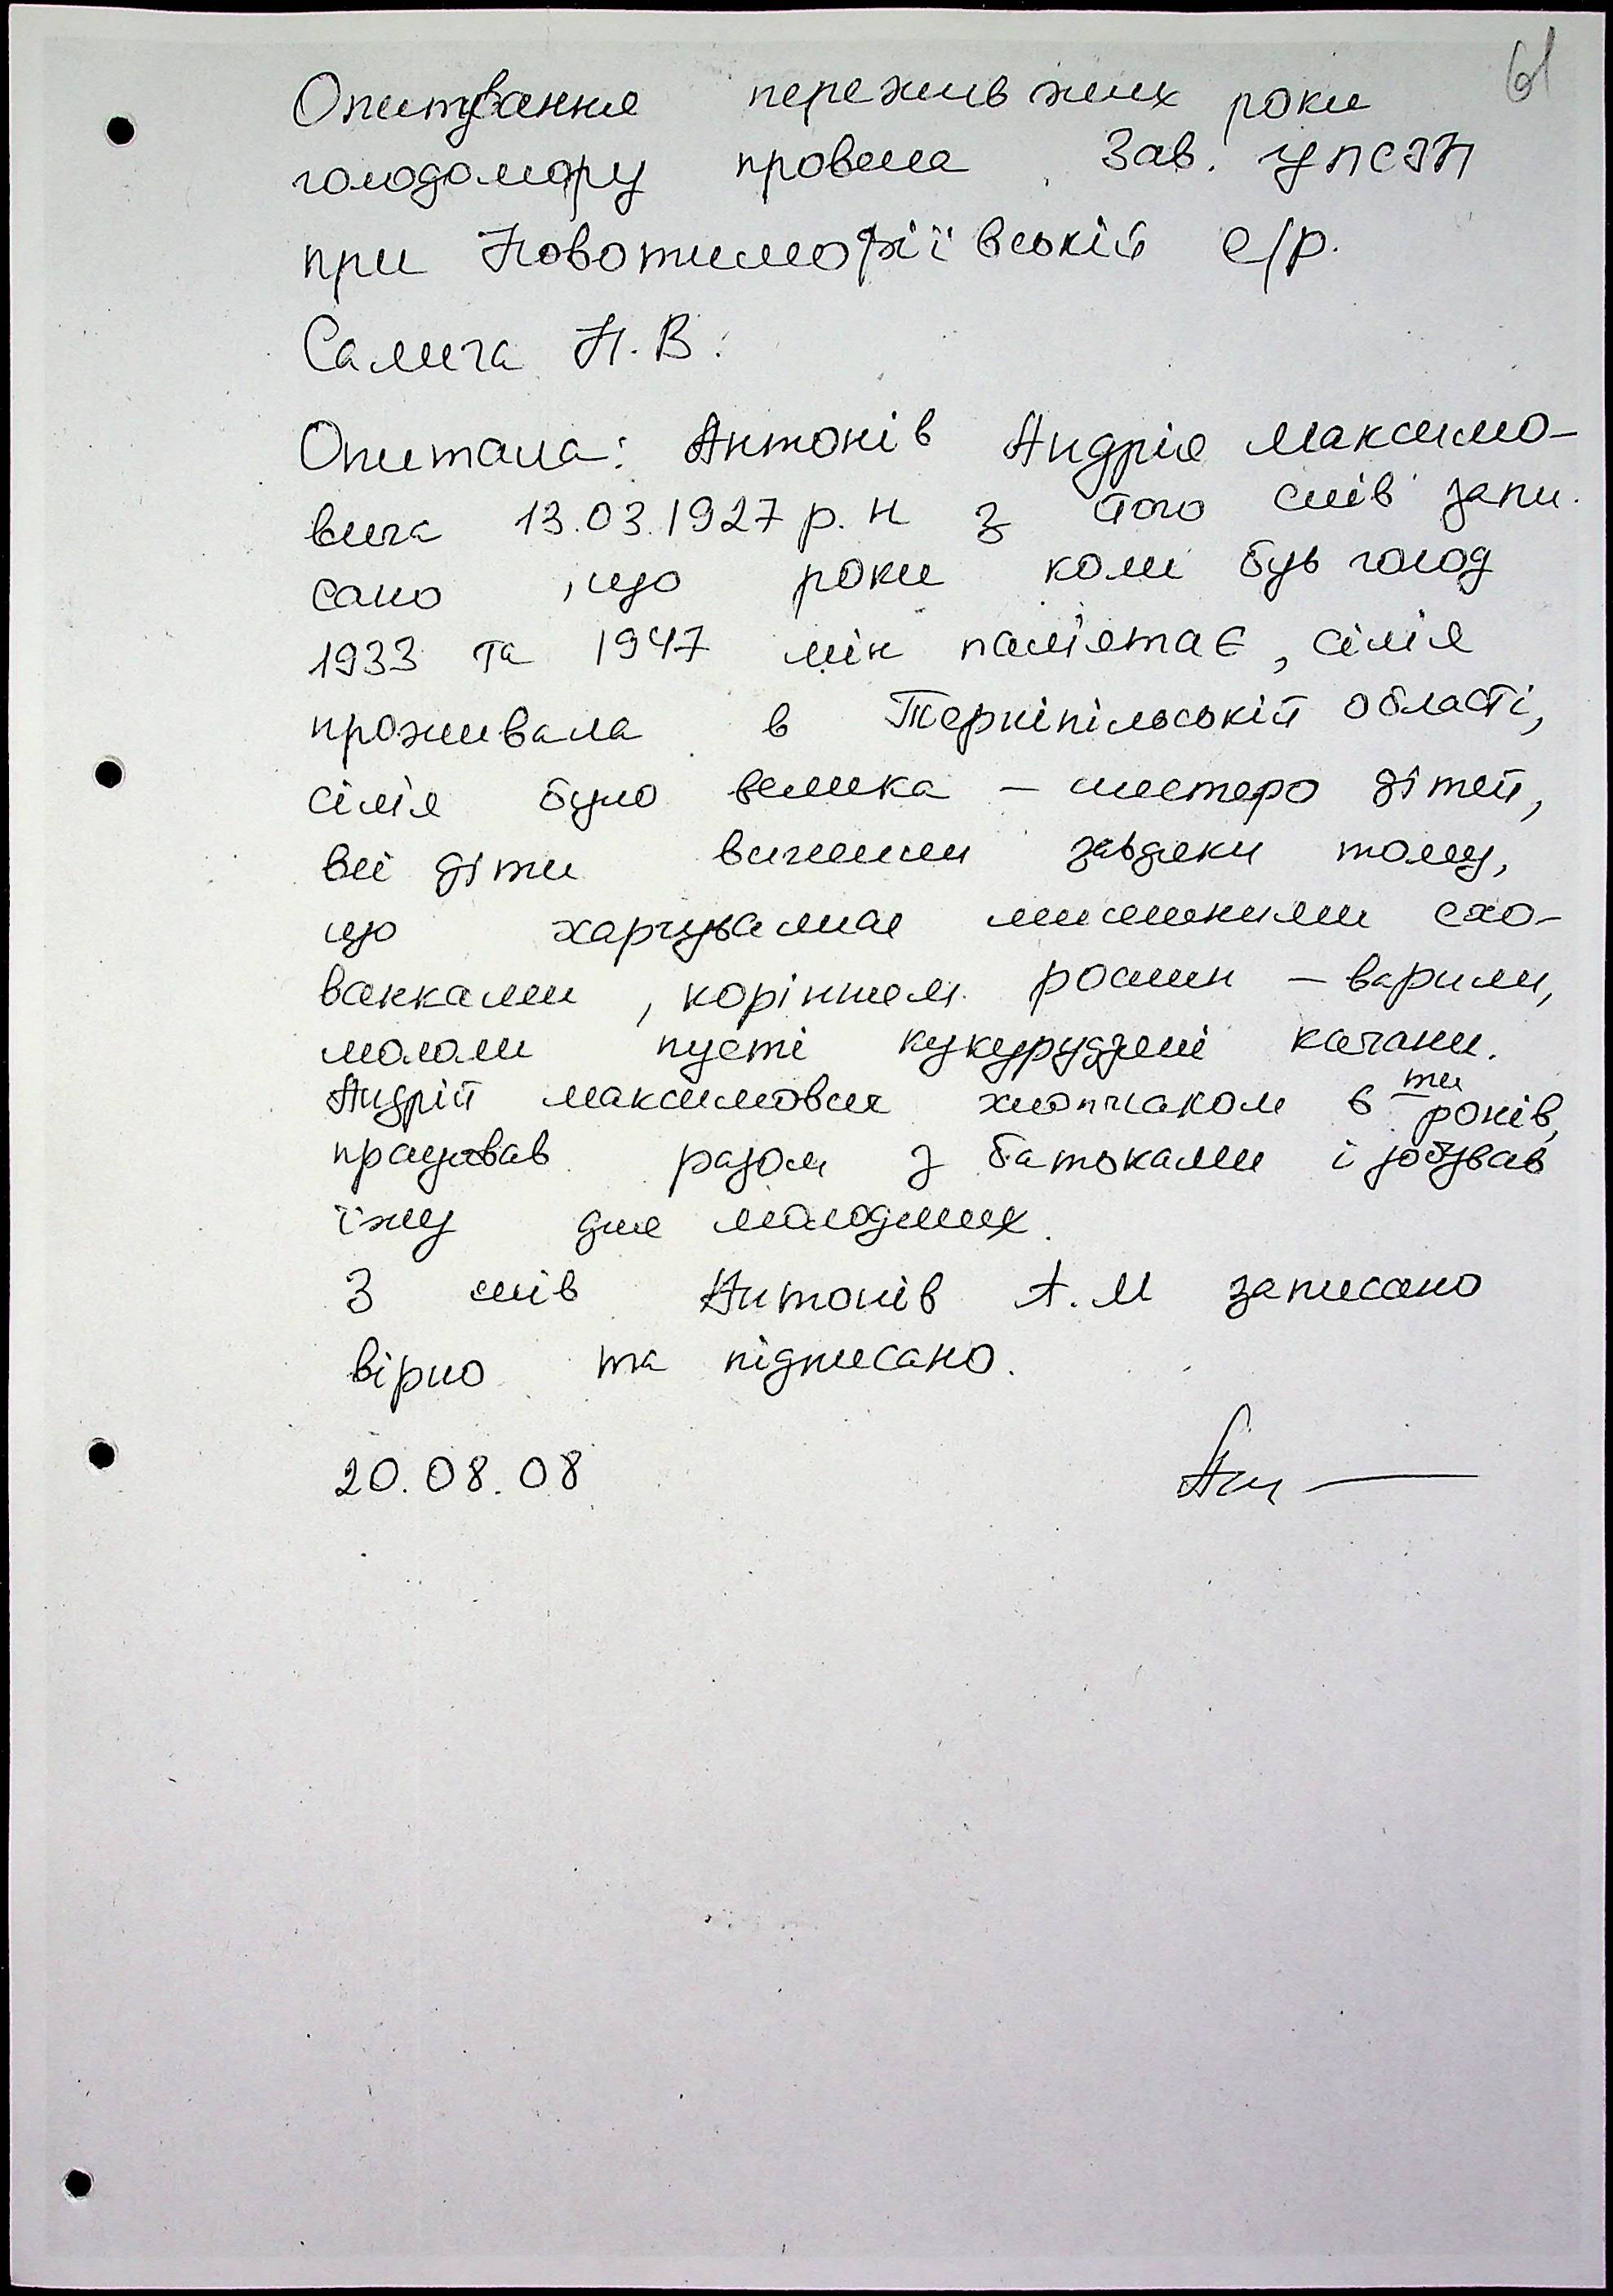 61
Опитування переживших роки
голодомору провела Зав. УПСЗН
при Новотимофіївській с/р.
Салига Н.В.
Опитала: Антонів Андрія Максимо-
вича 13.03.1927 р.н з його слів запи-
сано , що роки коли був голод
1933 та 1947 він пам'ятає, сім'я
проживала в Терніпільській області,
сім'я було велика – шестеро дітей,
всі діти вижили завдяки тому,
що харчувались мишиними схо-
ванками, корінням рослин – варили,
мололи пусті кукурудзяні качани.
Андрій Максимович хлопчаком 6 ти років,
працював разом з батьками і добував
їжу для молодших.
З слів Антонів А.М записано
вірно та підписано.
20.08.08